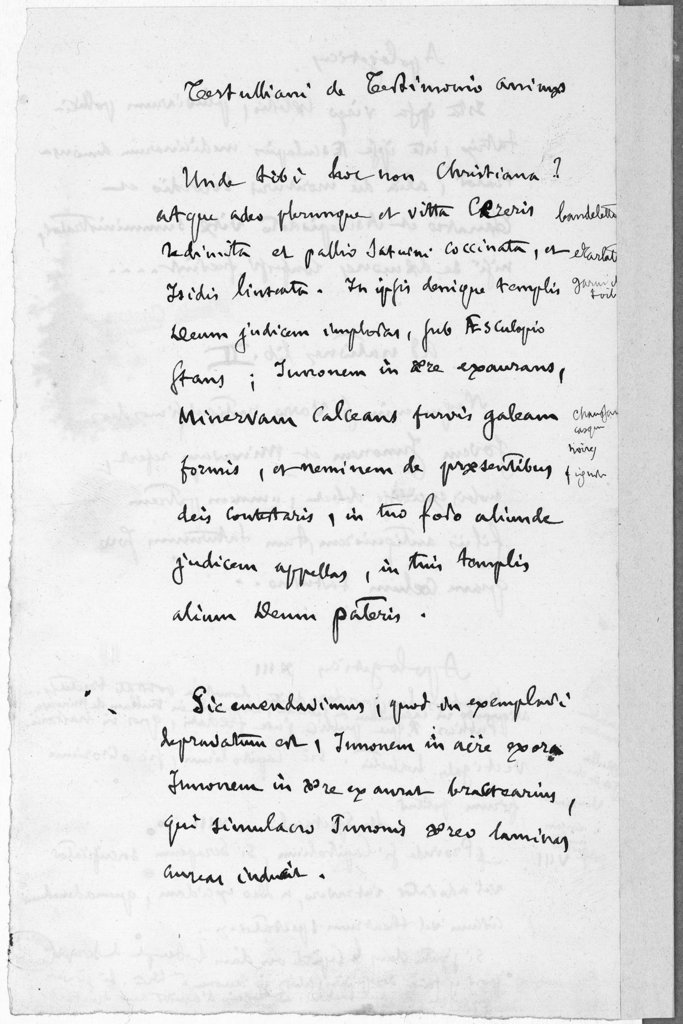 Tertulliani de Testimonio animæ
Unde tibi hoc non Christiana ?
atque adeo plerumque et vitta Cereris bandelette
redimita et pallio Saturni coccinata, et écarlate
Isidis linteata. In ipsis denique templis garni de toile
Deum judicem imploras, sub Æsculapio
stans ; Junonem in ære exaurans,
Minervam calceans furvis galeam chaussant casque
formis, et neminem de præsentibus noires
deis contestaris, in tuo foro aliunde
judicem appellas, in tuis templis
alium Deum pateris .
Sic emendavimus ; quod in exemplari
depravatum est, Junonem in aëre exora
Junonem in ære exaurat bractearius,
qui simulacro Junonis æreo laminas
aureas inducit .